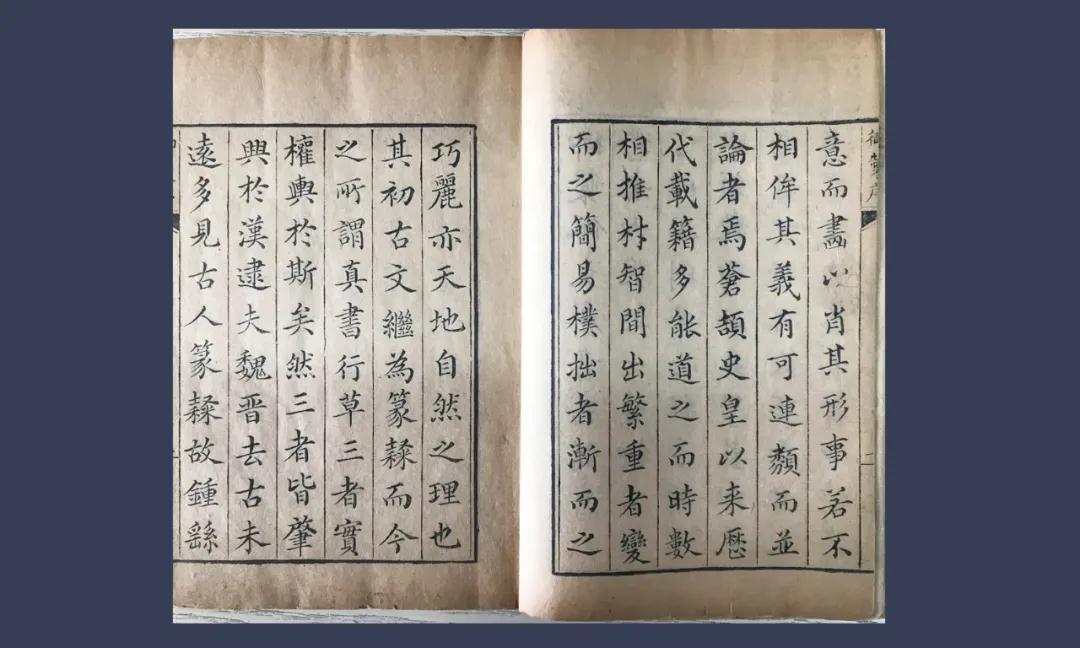 御製序
二
意而畵以肖其形事若不
相侔其義有可連類而並
論者焉蒼頡史皇以来歷
代載籍多能道之而時數
相推材智間出繁重者變
而之簡易樸拙者漸而之
巧麗亦天地自然之理也
其初古文繼為篆隸而今
之所謂真書行草三者實
權輿於斯矣然三者皆肇
興於漢逮夫魏晋去古未
遠多見古人篆隸故鍾繇